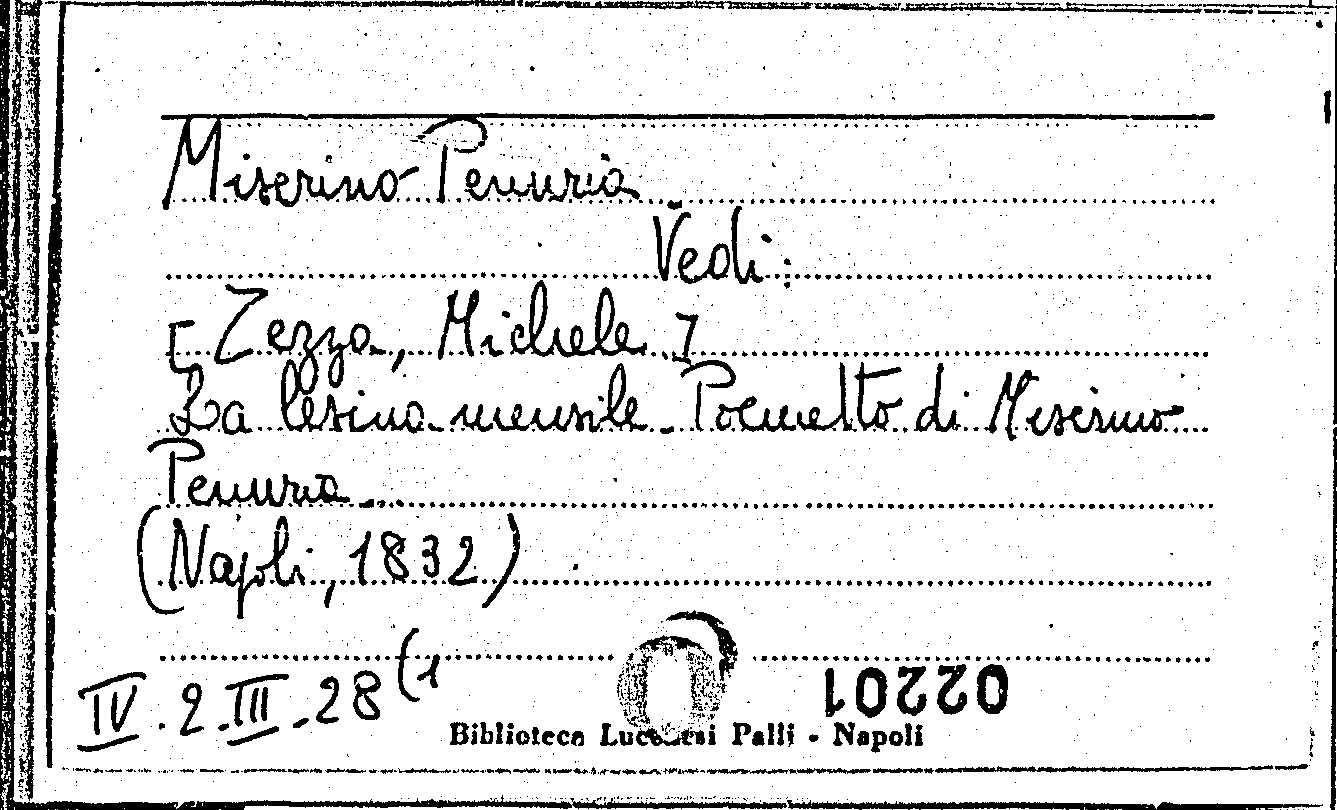 Miserino Penuria
Vedi:
[Zezza, Michele]
La lesina mensile. Poemetto di Miserino
Penuria...
(Napoli, 1832)
IV. 2. III. 28 (1
02201
Biblioteca Lucchesi Palli - Napoli